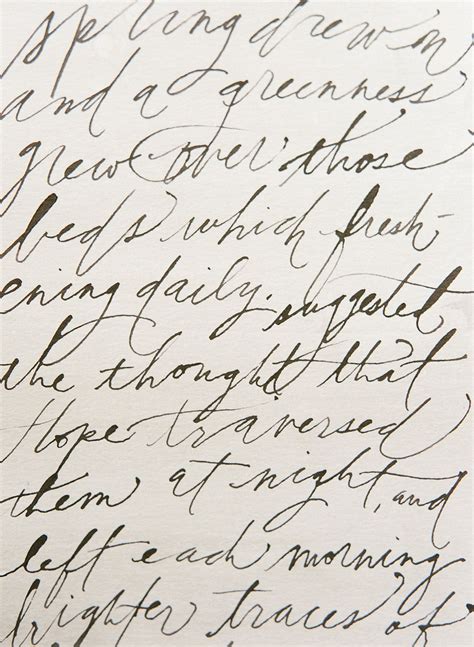 spring drew on
and a greenness
grew over those
beds which fresh-
ening daily. suggested
the thought that
Hope traversed
them at night, and
left each morning
brighter traces of